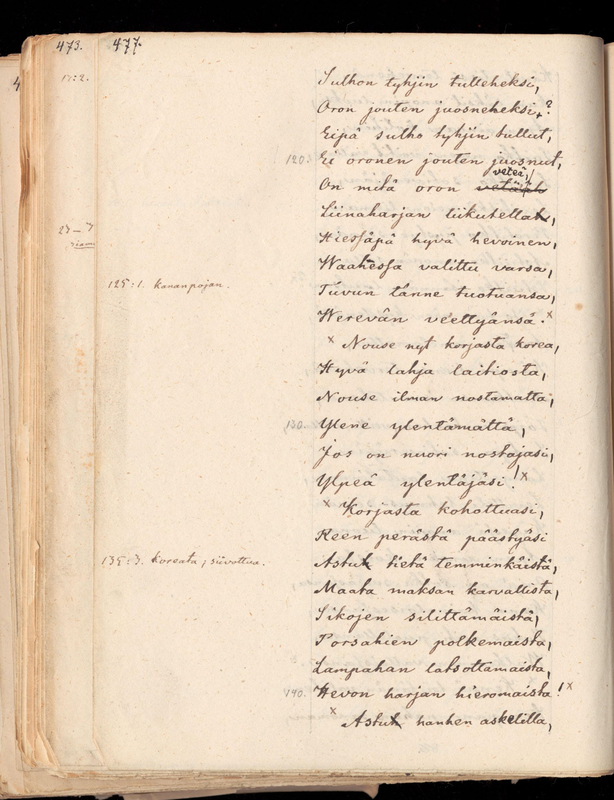 473. 477.
17:2.
Sulhon tyhjin tulleheksi,
Oron jouten juosneheksi,?
Eipä sulho tyhjin tullut,
120. Ei oronen jouten juosnut,
vetei,
On mitä oron vetäpi
Liinaharjan liikutella,
Hiessäpä hyvä hevoinen,
Waahessa valittu varsa,
125:1. kananpojan.
Tuvun tänne tuotuansa,
Werevän veettyänsä.x
x Nouse nyt korjasta korea,
Hyvä lahja laitiosta,
Nouse ilman nostamatta,
130. Ylene ylentämättä,
Jos on nuori nostajasi,
Ylpeä ylentäjäsi!x
x Korjasta kohottuasi,
Reen perästä päästyäsi
135:3. koreata; siivottua.
Astu tietä temminkäistä,
Maata maksan karvallista,
Sikojen silittämäistä,
Porsahien polkemaista,
Lampahan latsottamaista,
140. Hevon harjan hieromaista!x
x Astu hanhen askelilla,